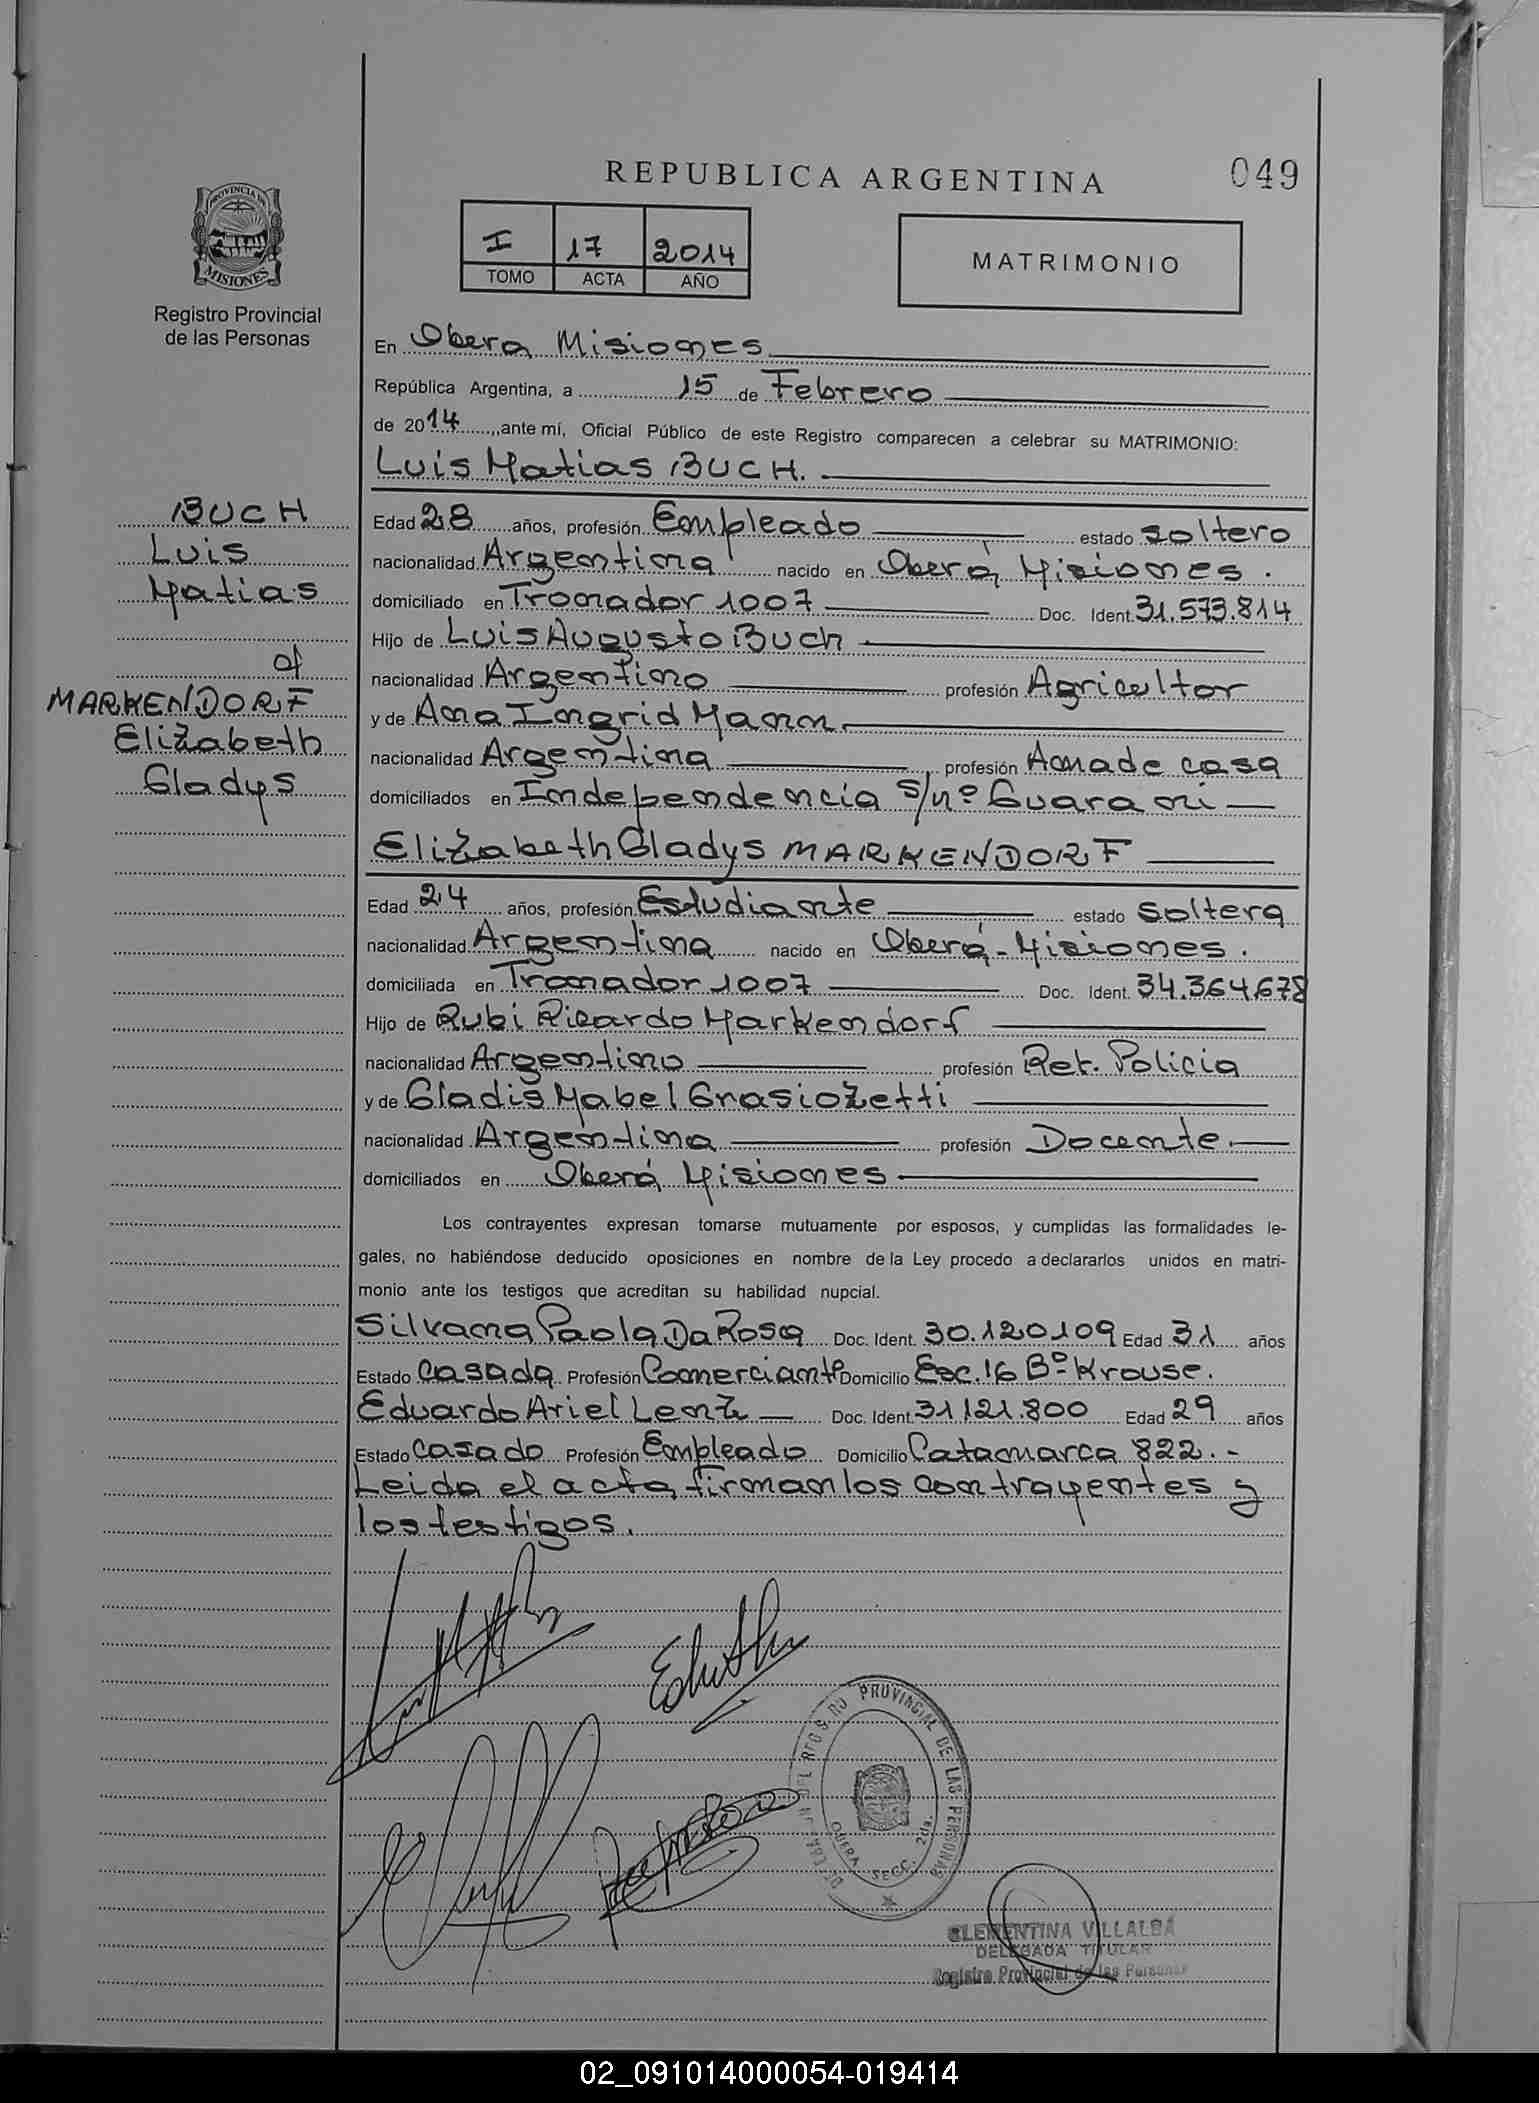 REPUBLICA ARGENTINA
049
PROVINCIA DE
MISIONES
Registro Provincial
de las Personas
I 17 2014
TOMO ACTA AÑO
MATRIMONIO
En Obera Misiones
República Argentina, a 15 de Febrero
de 2014, ante mí, Oficial Público de este Registro comparecen a celebrar su MATRIMONIO:
Luis Matias BUCH.
BUCH
Luis
Matias
MARKENDORF
Elizabeth
Gladys
Edad 28 años, profesión Empleado estado soltero
nacionalidad Argentina nacido en Oberá Misiones.
domiciliado en Tronador 1007 Doc. Ident. 31.573.814
Hijo de Luis Augusto Buch
nacionalidad Argentino profesión Agricultor
y de Ana Ingrid Mann
nacionalidad Argentina profesión Ama de casa
domiciliados en Independencia s/nº Guarani
Elizabeth Gladys MARKENDORF
Edad 24 años, profesión Estudiante estado soltera
nacionalidad Argentina nacido en Oberá - Misiones.
domiciliada en Tronador 1007 Doc. Ident. 34.364.678
Hijo de Rubi Ricardo Markendorf
nacionalidad Argentino profesión Ret. Policia
y de Gladis Mabel Grasiozetti
nacionalidad Argentina profesión Docente
domiciliados en Oberá Misiones
Los contrayentes expresan tomarse mutuamente por esposos, y cumplidas las formalidades le-
gales, no habiéndose deducido oposiciones en nombre de la Ley procedo a declararlos unidos en matri-
monio ante los testigos que acreditan su habilidad nupcial.
Silvana Paola Da Rosa Doc. Ident. 30.120109 Edad 31 años
Estado Casada Profesión Comerciante Domicilio Esc. 16 Bº Krause.
Eduardo Ariel Lentz Doc. Ident. 31.121.800 Edad 29 años
Estado Casado Profesión Empleado Domicilio Catamarca 822.-
Leida el acta firman los contrayentes y
los testigos.
PROVINCIAL DE LAS PERSONAS
OBERA SECC. 2da.
CLEMENTINA VILLALBA
DELEGADA TITULAR
Registro Provincial de las Personas
02_091014000054-019414